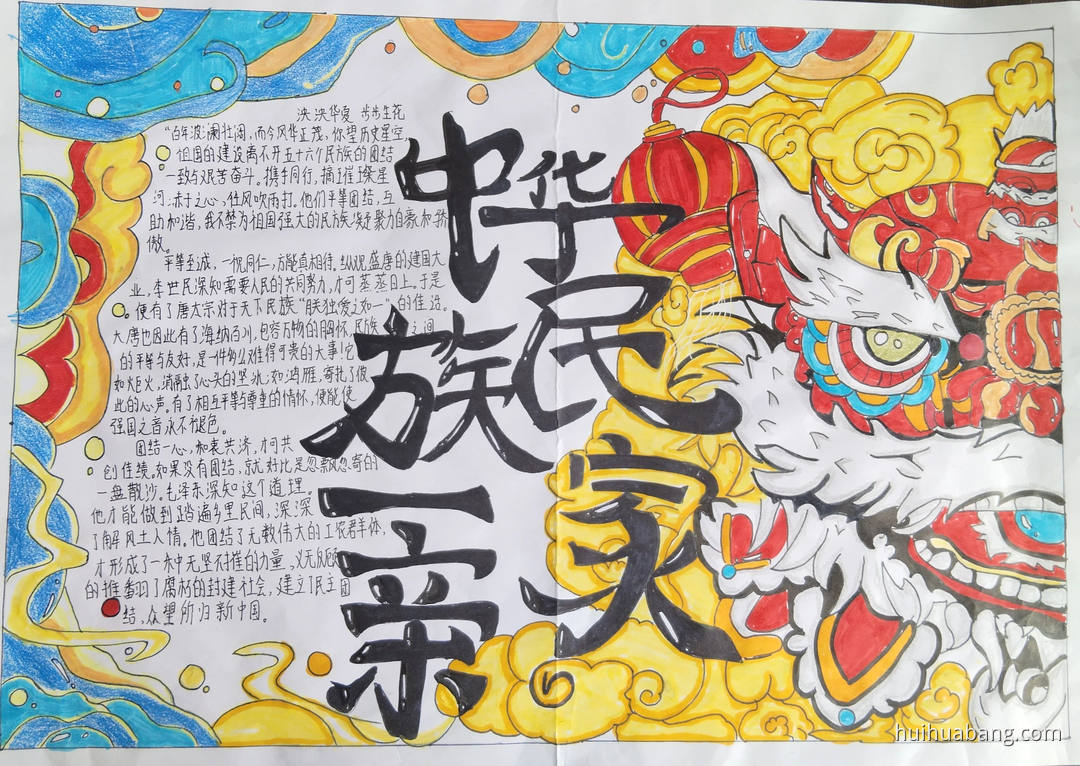 泱泱华夏 步步生花
“百年波澜壮阔,而今风华正茂,你望历史星空,
祖国的建设离不开五十六个民族的团结
一致与艰苦奋斗。携手同行,摘璀璨星
河;赤子之心,任风吹雨打。他们平等团结,互
助和谐,我不禁为祖国强大的民族凝聚力自豪和骄
傲。
平等至诚,一视同仁,方能真相待。纵观盛唐的建国大
业,李世民深知需要人民的共同努力,才可蒸蒸日上。于是
便有了唐太宗对于天下民族“朕独爱之如一”的佳话。
大唐也因此有了海纳百川,包容万物的胸怀,民族之间
的平等与友好,是一件多么难得可贵的大事!它
如火炬火,消融了心头的坚冰;如鸿雁,寄托了彼
此的心声。有了相互平等与尊重的情怀,便能使
强国之音永不褪色。
团结一心,和衷共济,才可共
创佳绩。如果没有团结,就好比是忽飘忽寄的
一盘散沙。毛泽东深知这个道理,
他才能做到踏遍乡里民间,深深
了解风土人情。他团结了无数伟大的工农群体,
才形成了一种无坚不摧的力量,义无反顾
的推翻了腐朽的封建社会,建立了民主团
结,众望所归新中国。
中华
民族
一家
亲
huihuabang.com